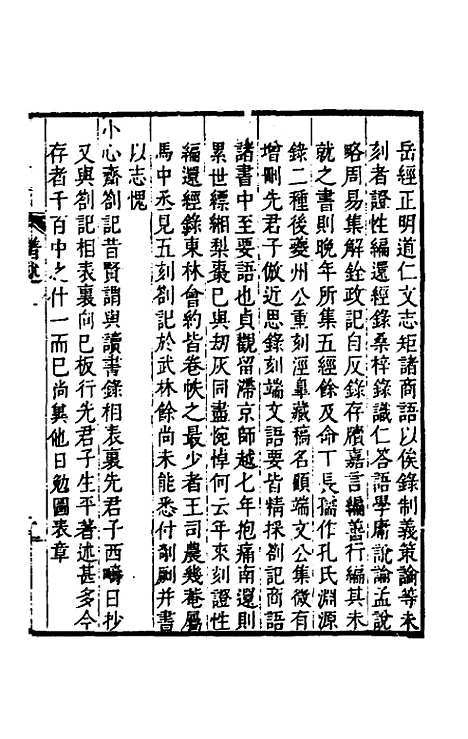 岳經正明道仁文志矩諸商語以俟錄制義策論等未
刻者證性編還經錄桑梓錄識仁答語學庸說論孟說
略周易集解銓政記自反錄存牘嘉言編善行編其未
就之書則晚年所集五經餘及命丁長孺作孔氏淵源
錄二種後夔州公重刻涇臯藏稿名顧端文公集微有
增刪先君子倣近思錄刻端文語要皆精採劄記商語
諸書中至要語也貞觀留滯京師越七年抱痛南還則
累世縹緗梨棗已與刼灰同盡惋悼何云年來刻證性
編還經錄東林會約皆卷帙之最少者王司農幾菴屬
馬中丞見五刻劄記於武林餘尚未能悉付剞劂并書
以志愧
小心齋劄記昔賢謂與讀書錄相表裏先君子西疇日抄
又與劄記相表裏向已板行先君子生平著述甚多今
存者千百中之什一而已尚冀他日勉圖表章
譜